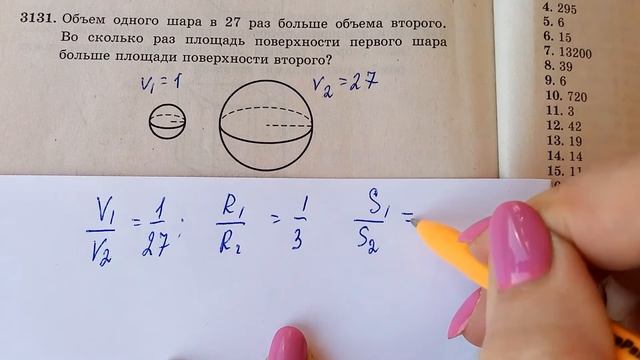 3131. Объем одного шара в 27 раз больше объема второго.
Во сколько раз площадь поверхности первого шара
больше площади поверхности второго?
V₁ = 1
V₂ = 27
V₁/V₂ = 1/27; R₁/R₂ = 1/3 S₁/S₂ =
4. 295
5. 6
6. 15
7. 13200
8. 39
9. 6
10. 720
11. 3
12. 42
13. 19
14. 14
15. 11